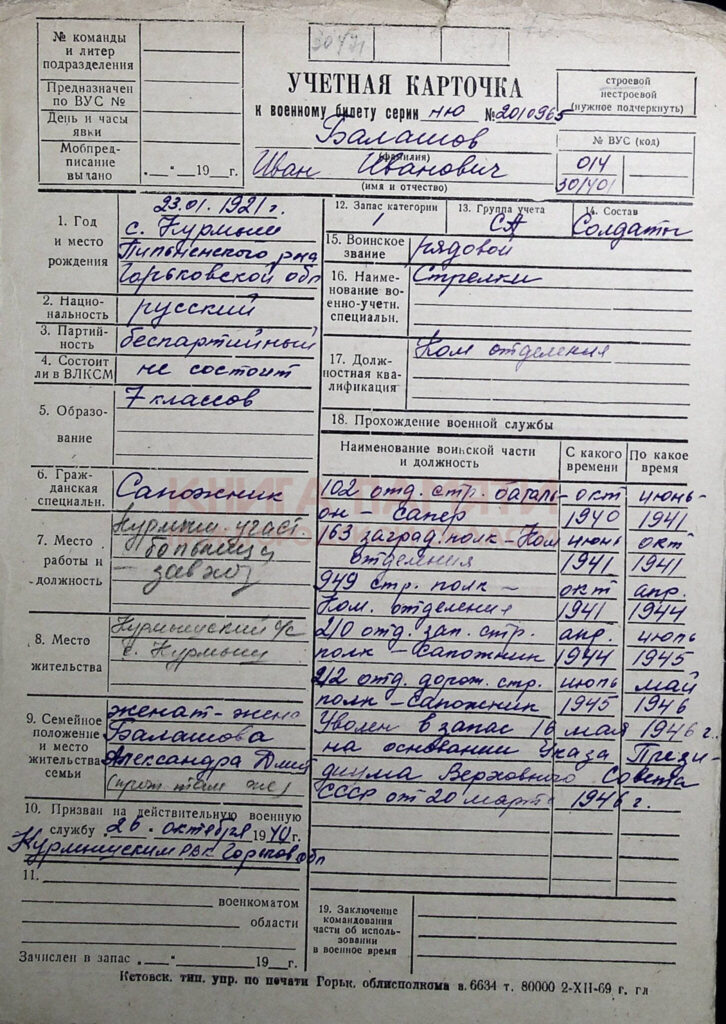 № команды
и литер
подразделения
Предназначен
по ВУС №
День и часы
явки
Мобпред-
писание
выдано
„ “ 19 г.
30/71
УЧЕТНАЯ КАРТОЧКА
к военному билету серии НЮ №2010965
Балашов
(фамилия)
Иван Иванович
(имя и отчество)
строевой
нестроевой
(нужное подчеркнуть)
№ ВУС (код)
014
301401
1. Год
и место
рождения
23.01.1921 г.
с. Курмыш
Пильненского р-на
Горьковской обл
2. Нацио-
нальность
русский
3. Партий-
ность
беспартийный
4. Состоит
ли в ВЛКСМ
не состоит
5. Образо-
вание
7 классов
6. Граж-
данская
специальн.
Сапожник
7. Место
работы и
должность
Курмыш участ
больница
завхоз
8. Место
жительства
Курмышский с/с
с. Курмыш
9. Семейное
положение
и место
жительства
семьи
женат - жена
Балашова
Александра Дмит
(прож там же)
10. Призван на действительную военную
службу 26. октября 1940 г.
Курмышским РВК Горьков обл
11.
военкоматом
области
Зачислен в запас „ “ 19 г.
12. Запас категории
1
13. Группа учета
СА
14. Состав
Солдаты
15. Воинское
звание
рядовой
16. Наиме-
нование во-
енно-учетн.
специальн.
Стрелки
17. Долж-
ностная ква-
лификация
Ком отделения
18. Прохождение военной службы
Наименование воинской части
и должность
С какого
времени
По какое
время
102 отд. стр. баталь- окт июнь-
он - сапер 1940 1941
163 заград. полк - Ком июнь окт
отделения 1941 1941
949 стр. полк - окт апр.
Ком. отделения 1941 1944
210 отд. зап. стр. апр. июль
полк - Сапожник 1944 1945
212 отд. дорож. стр. июль май
полк - Сапожник 1945 1946
Уволен в запас 16 мая 1946 г.
на основании Указа Прези-
диума Верховного Совета
СССР от 20 марта 1946 г.
19. Заключение
командования
части об исполь-
зовании
в военное время
КНИГА ПАМЯТИ
Кетовск. тип. упр. по печати Горьк. облисполкома з. 6634 т. 80000 2-XII-69 г. гл